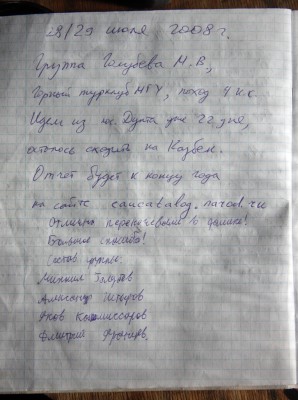 28/29 июля 2008 г.
Группа Голубева М.В.,
Горный турклуб МГУ, поход 4 к.с.
Идем из уже 22 дня,
осталось сходить на Казбек.
Отчет будет к концу года
на сайте
Отлично переночевали в домике!
Большое спасибо!
Состав группы:
Михаил Голубев
Александр
Яков Комиссаров
Дмитрий